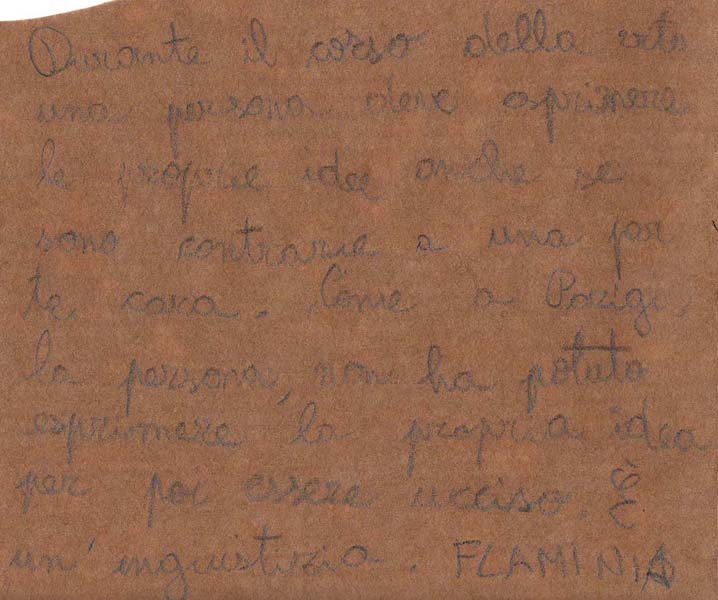 Durante il corso della vita
una persona deve esprimere
le proprie idee anche se
sono contrarie a una par
te cara. Come a Parigi,
la persona, non ha potuto
esprimere la propria idea
per poi essere ucciso. È
un'inguistizia. FLAMINIA